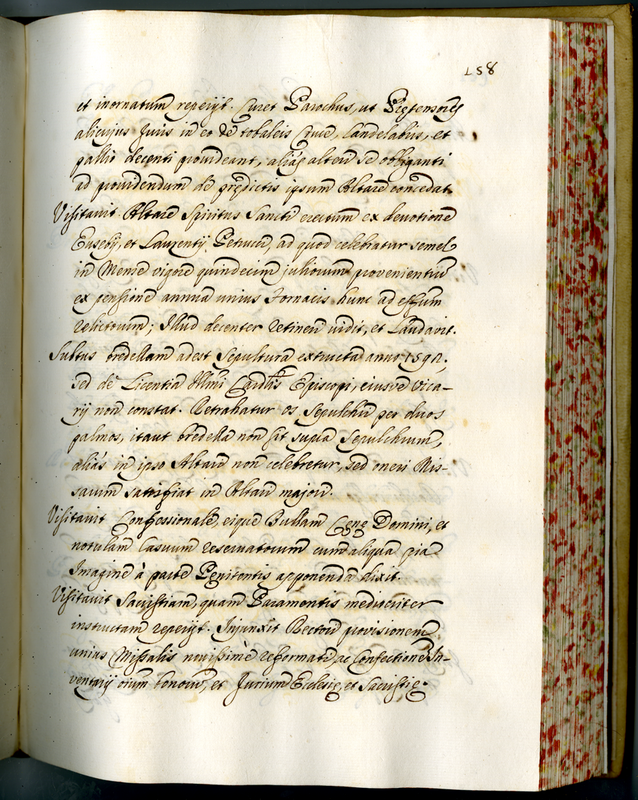 158
et inornatum reperijt. Curet Parochus, ut
alicujus Juris in eo de tobaleis Cruce, Candelabris, et
pallio decenti provideant, alias alteri se obliganti
ad providendum de prędictis ipsum Altare concedat.
Visitavit Altare Spiritus Sancti erectum ex devotione
Eusebij, et Laurentij Petrucci, ad quod celebratur semel
in Mense vigore quindecim juliorum provenientium
ex pensione annua unius Fornacis hunc ad effum
relictorum; Illud decenter retineri vidit, et Laudavit.
Subtus bredellam adest Sepultura extructa anno 1592,
sed de Licentia Illmi Cardlis Episcopi, eiusve Vica-
rij non constat. Retrahatur os Sepulchri per duos
palmos, itaut bredella non sit supra Sepulchrum,
alias in ipso Altari non celebretur, sed oneri Mis-
sarum satisfiat in Altari majori.
Visitavit Confessionale, eique Bullam Cęnę Domini, et
notulam Casuum reservatorum cum aliqua pia
Imagine à parte Pęnitentis apponenda dixit.
Visitavit Sacristiam, quam Paramentis mediocriter
instructam reperijt. Injunxit Rectori provisionem
unius Missalis novissime reformati, ac Confectione In-
ventarij oium bonorum, et Jurium Ecclesię, et Sacristię.